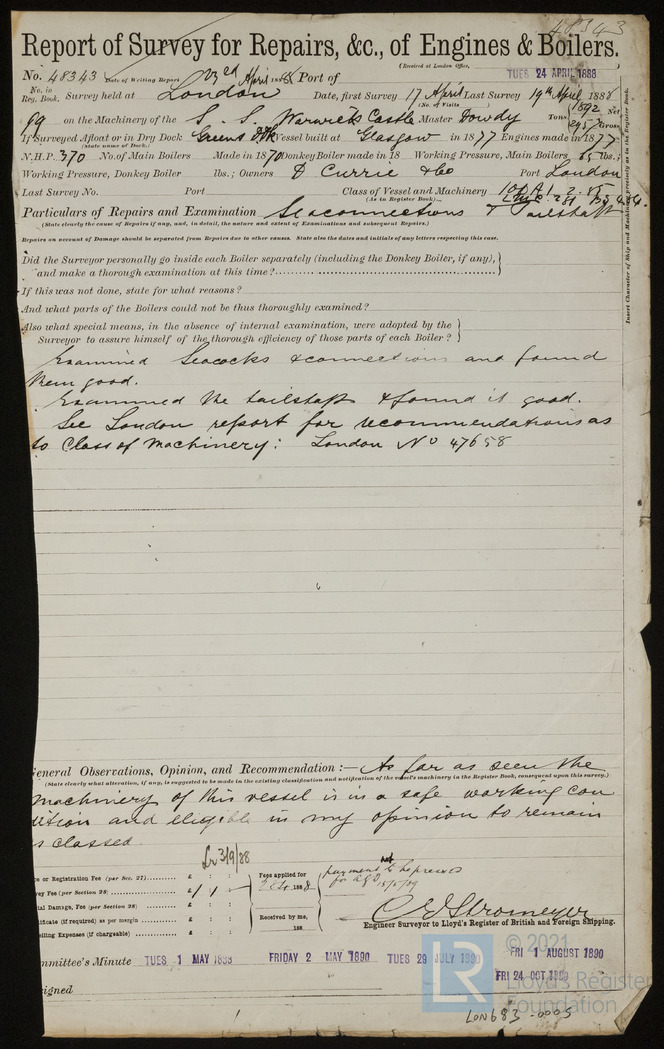 48343
Report of Survey for Repairs, &c., of Engines & Boilers.
(Received at London Office,
No. 48343 Date of Writing Report 23rd April 1888 Port of TUES 24 APRIL 1888
No. in Reg. Book. Survey held at London Date, first Survey 17 April Last Survey 19th April 1888
(No. of Visits
99 on the Machinery of the S. S. Warwick Castle Master Dowdy Tons 1892 Net 2957 Gross
If Surveyed Afloat or in Dry Dock Greens DDk Vessel built at Glasgow in 1877 Engines made in 1877
(State name of Dock.)
N.H.P. 370 No. of Main Boilers Made in 1870 Donkey Boiler made in 18 Working Pressure, Main Boilers 65 lbs.;
Working Pressure, Donkey Boiler lbs.; Owners D Currie & Co Port London
Last Survey No. Port Class of Vessel and Machinery 100 A1. 2. 85
(As in Register Book)
Particulars of Repairs and Examination Seaconnections & Tailshaft
(State clearly the cause of Repairs if any, and, in detail, the nature and extent of Examinations and subsequent Repairs.)
Repairs on account of Damage should be separated from Repairs due to other causes. State also the dates and initials of any letters respecting this case.
Did the Surveyor personally go inside each Boiler separately (including the Donkey Boiler, if any),
and make a thorough examination at this time?
If this was not done, state for what reasons?
And what parts of the Boilers could not be thus thoroughly examined?
Also what special means, in the absence of internal examination, were adopted by the
Surveyor to assure himself of the thorough efficiency of those parts of each Boiler?
Examined Seacocks & connections and found
them good.
Examined the tailshaft & found it good.
See London report for recommendations as
to Class of Machinery: London No 47658
Insert Character of Ship and Machinery precisely as in the Register Book.
General Observations, Opinion, and Recommendation:— As far as seen the
(State clearly what alteration, if any, is suggested to be made in the existing classification and notification of the vessel's machinery in the Register Book, consequent upon this survey.)
machinery of this vessel is in a safe working con
dition and eligible in my opinion to remain
as classed
Lr 3/9/88
ce or Registration Fee (per Sec. 27) £ : :
vey Fee (per Section 28) £ 1 : 1 : -
ial Damage, Fee (per Section 28) £ : :
tificate (if required) as per margin £ : :
elling Expenses (if chargeable) £ : :
Fees applied for
188
Received by me,
188
payment not to be pressed
for
C E Stromeyer
Engineer Surveyor to Lloyd's Register of British and Foreign Shipping.
ommittee's Minute TUES 1 MAY 1888 FRIDAY 2 MAY 1890 TUES 29 JULY 1890 FRI 1 AUGUST 1890
FRI 24 OCT 1890
signed
© 2021
LR
Lloyd's Register
Foundation
LON683-0005